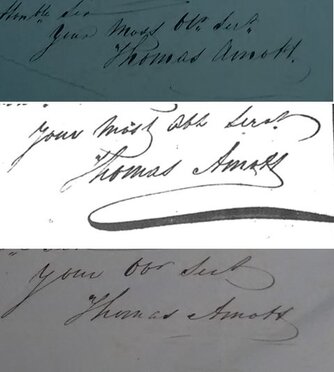 Honble Sir
Your Most Obt Servt
Thomas Arnott.
Your Most Obt Servt
Thomas Arnott
Your Obt Servt
Thomas Arnott